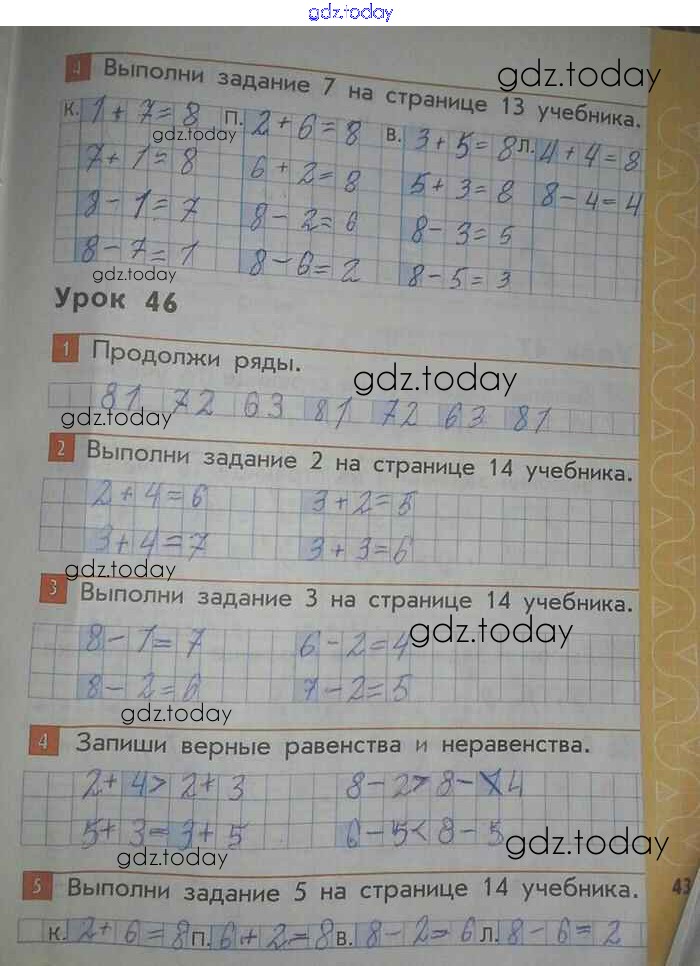 gdz.today
4 Выполни задание 7 на странице 13 учебника.
gdz.today
к. 1+7=8 п. 2+6=8 в. 3+5=8 л. 4+4=8
gdz.today
7+1=8 6+2=8 5+3=8 8-4=4
8-1=7 8-2=6 8-3=5
8-7=1 8-6=2 8-5=3
gdz.today
Урок 46
1 Продолжи ряды.
gdz.today
81 72 63 81 72 63 81
gdz.today
2 Выполни задание 2 на странице 14 учебника.
2+4=6 3+2=5
3+4=7 3+3=6
gdz.today
3 Выполни задание 3 на странице 14 учебника.
8-1=7 6-2=4
gdz.today
8-2=6 7-2=5
gdz.today
4 Запиши верные равенства и неравенства.
2+4>2+3 8-2>8-4
5+3=3+5 6-5<8-5
gdz.today
gdz.today
5 Выполни задание 5 на странице 14 учебника.
43
к. 2+6=8 п. 6+2=8 в. 8-2=6 л. 8-6=2